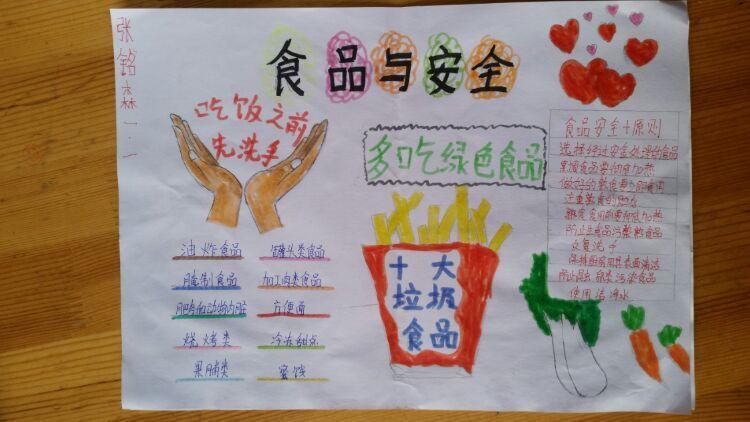 张铭森一.一
食品与安全
吃饭之前
先洗手
多吃绿色食品
油炸食品
罐头类食品
腌制食品
加工肉类食品
肥肉和动物内脏
方便面
烧烤类
冷冻甜点
果脯类
蜜饯
十大
垃圾
食品
食品安全十原则
选择经过安全处理的食品
彻底加热
做好的熟食要立即食用
反复洗手
保持厨房用具表面清洁
防止昆虫
使用洁净水